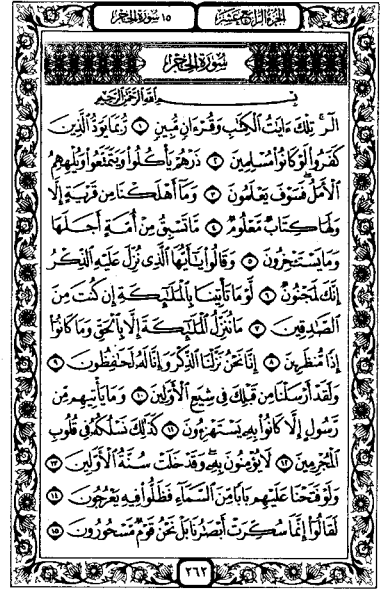 الجزء الرابع عشر
١٥ سورة الحجر
سورة الحجر
بسم الله الرحمن الرحيم
الٓر ۚ تِلْكَ ءَايَٰتُ ٱلْكِتَٰبِ وَقُرْءَانٍ مُّبِينٍ ١ رُّبَمَا يَوَدُّ ٱلَّذِينَ
كَفَرُوا۟ لَوْ كَانُوا۟ مُسْلِمِينَ ٢ ذَرْهُمْ يَأْكُلُوا۟ وَيَتَمَتَّعُوا۟ وَيُلْهِهِمُ
ٱلْأَمَلُ ۖ فَسَوْفَ يَعْلَمُونَ ٣ وَمَآ أَهْلَكْنَا مِن قَرْيَةٍ إِلَّا
وَلَهَا كِتَابٌ مَّعْلُومٌ ٤ مَّا تَسْبِقُ مِنْ أُمَّةٍ أَجَلَهَا
وَمَا يَسْتَـْٔخِرُونَ ٥ وَقَالُوا۟ يَٰٓأَيُّهَا ٱلَّذِى نُزِّلَ عَلَيْهِ ٱلذِّكْرُ
إِنَّكَ لَمَجْنُونٌ ٦ لَّوْ مَا تَأْتِينَا بِٱلْمَلَٰٓئِكَةِ إِن كُنتَ مِنَ
ٱلصَّٰدِقِينَ ٧ مَا نُنَزِّلُ ٱلْمَلَٰٓئِكَةَ إِلَّا بِٱلْحَقِّ وَمَا كَانُوٓا۟
إِذًا مُّنظَرِينَ ٨ إِنَّا نَحْنُ نَزَّلْنَا ٱلذِّكْرَ وَإِنَّا لَهُۥ لَحَٰفِظُونَ ٩
وَلَقَدْ أَرْسَلْنَا مِن قَبْلِكَ فِى شِيَعِ ٱلْأَوَّلِينَ ١٠ وَمَا يَأْتِيهِم مِّن
رَّسُولٍ إِلَّا كَانُوا۟ بِهِۦ يَسْتَهْزِءُونَ ١١ كَذَٰلِكَ نَسْلُكُهُۥ فِى قُلُوبِ
ٱلْمُجْرِمِينَ ١٢ لَا يُؤْمِنُونَ بِهِۦ ۖ وَقَدْ خَلَتْ سُنَّةُ ٱلْأَوَّلِينَ ١٣
وَلَوْ فَتَحْنَا عَلَيْهِم بَابًا مِّنَ ٱلسَّمَآءِ فَظَلُّوا۟ فِيهِ يَعْرُجُونَ ١٤
لَقَالُوٓا۟ إِنَّمَا سُكِّرَتْ أَبْصَٰرُنَا بَلْ نَحْنُ قَوْمٌ مَّسْحُورُونَ ١٥
٢٦٢